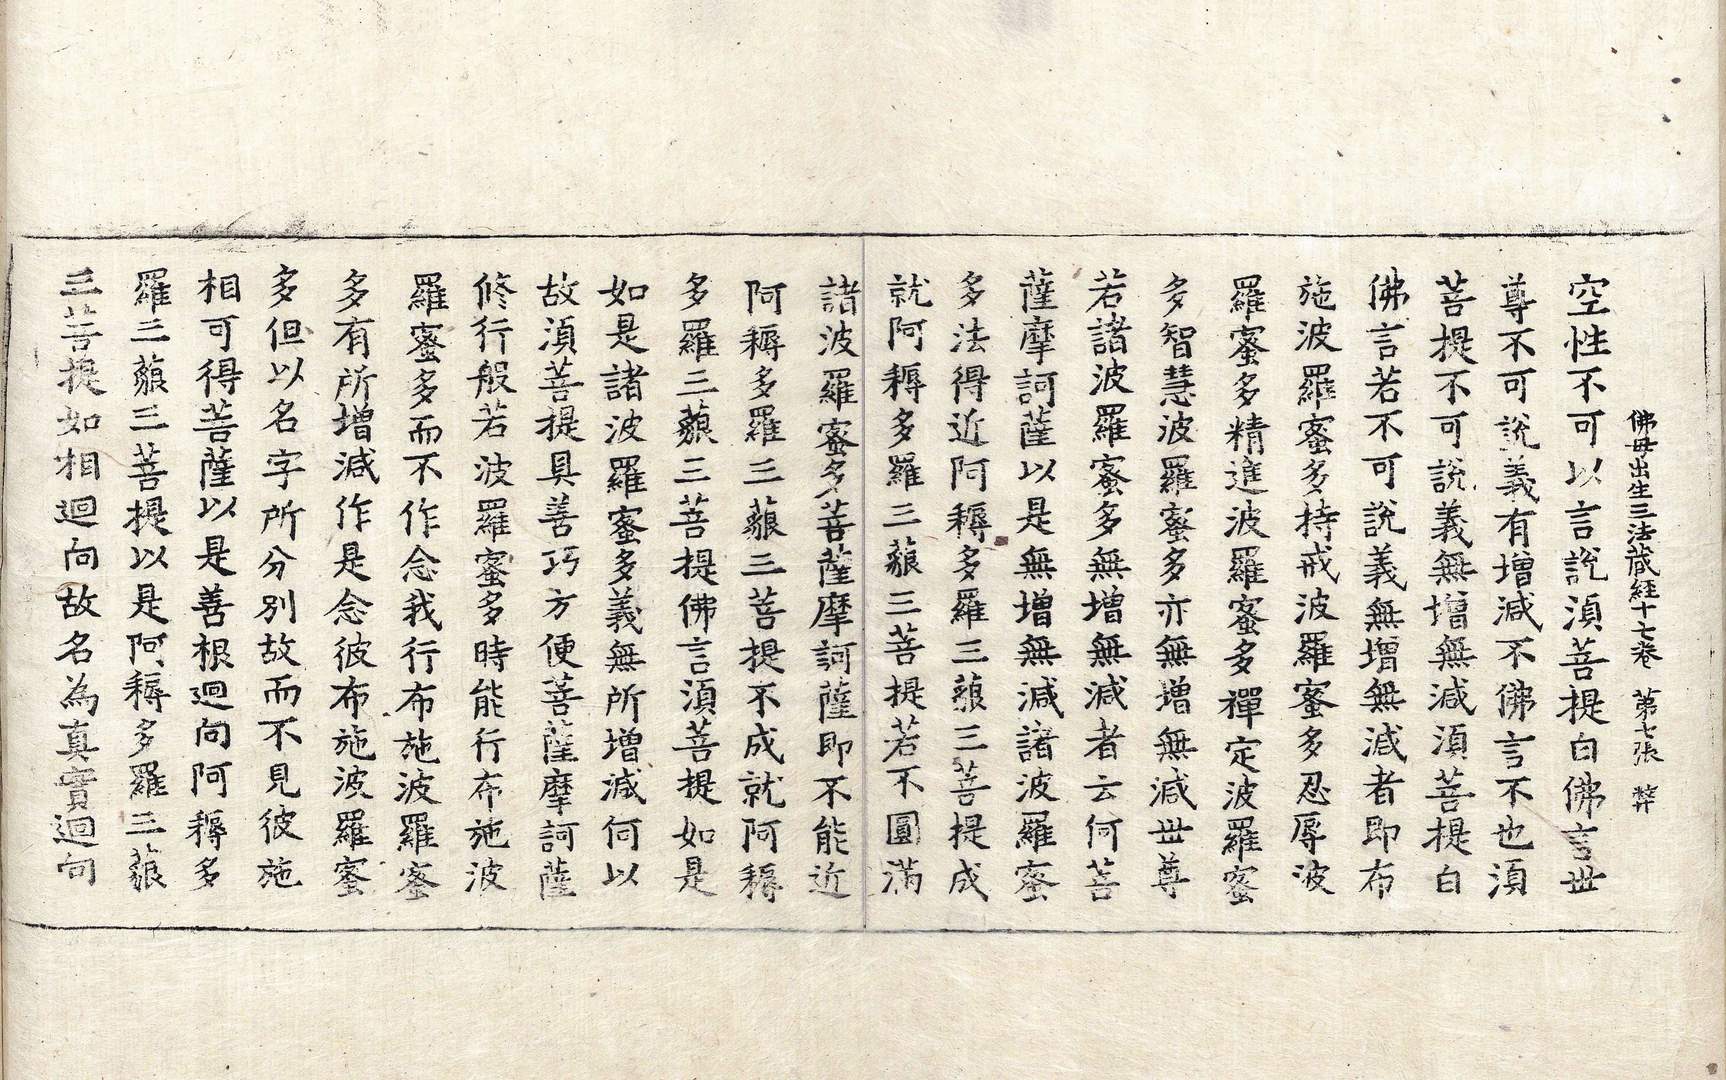 佛母出生三法藏經十七卷　第七張　弊
空性不可以言說湏菩提白佛言世
尊不可說義有增減不佛言不也湏
菩提不可說義無增無減湏菩提白
佛言若不可說義無增無減者即布
施波羅蜜多持戒波羅蜜多忍辱波
羅蜜多精進波羅蜜多禪定波羅蜜
多智慧波羅蜜多亦無增無減世尊
若諸波羅蜜多無增無減者云何菩
薩摩訶薩以是無增無減諸波羅蜜
多法得近阿耨多羅三藐三菩提成
就阿耨多羅三藐三菩提若不圓滿
諸波羅蜜多菩薩摩訶薩即不能近
阿耨多羅三藐三菩提不成就阿耨
多羅三藐三菩提佛言湏菩提如是
如是諸波羅蜜多義無所增減何以
故湏菩提具善巧方便菩薩摩訶薩
修行般若波羅蜜多時能行布施波
羅蜜多而不作念我行布施波羅蜜
多有所增減作是念彼布施波羅蜜
多但以名字所分別故而不見彼施
相可得菩薩以是善根迴向阿耨多
羅三藐三菩提以是阿耨多羅三藐
三菩提如相迴向故名為真實迴向